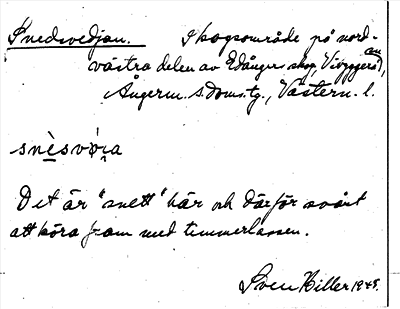 Snedsvedjan. Skogsområde på nord-
västra delen av Edånger skog, Vibyggerå,
Ångerm. s. Doms.tg., Västern. l.
snèsvø̨ia
Det är "snett" här och därför svårt
att köra fram med timmerlassen.
Sven Hiller 1945.